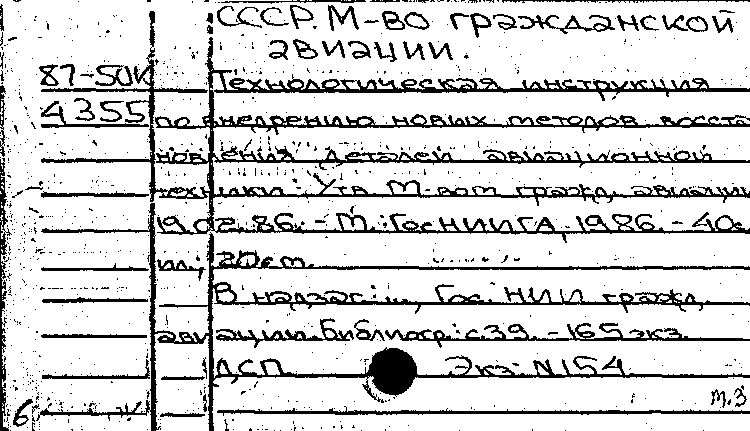 СССР. М-во гражданской
авиации.
87-50К Технологическая инструкция
4355 по внедрению новых методов восста
новления деталей авиационной
техники: Утв. М-вом гражд. авиации
19.02.86. - М.: ГосНИИГА, 1986. - 40с.
ил.; 20см.
В надзаг.: ..., Гос. НИИ гражд.
авиации. Библиогр.: с.39. - 165 экз.
ДСП. Экз. N154.
т.3
6